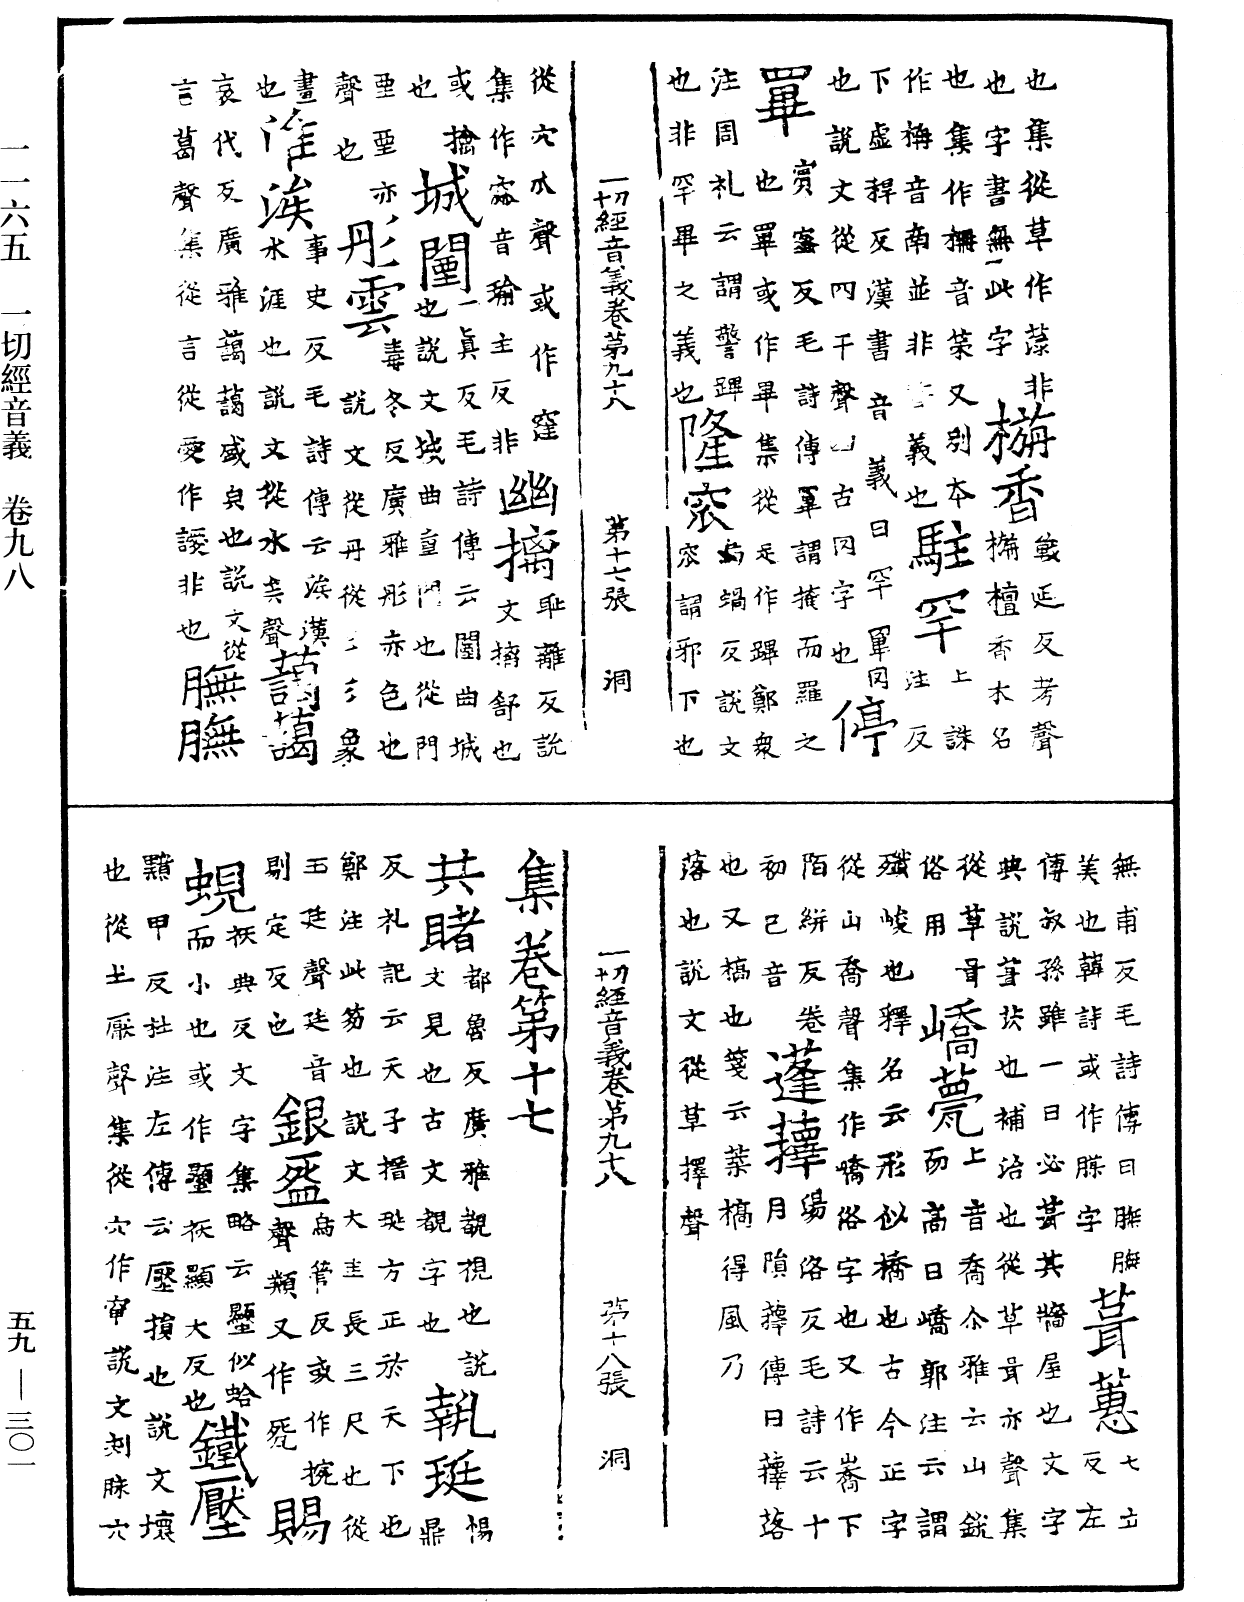 也集從草作㴱非
也字書無此字栴香戰延反考聲
也集作栴音策又別本栴檀香木名
作梅音南並非義也駐罕上誅注反
下虛稈反漢書音義曰罕罼罔
也說文從网干聲网古罔字也停
罼賓蜜反毛詩傳罼謂掩而羅之
也罼或作畢集從足作蹕鄭衆
注周礼云謂警蹕隆窊烏蝸反說文
也非罕畢之義也窊謂邪下也
一切經音義卷第九十八 第十七張 洞
從穴水聲或作窪
集作窳音瑜主反非幽摛耻離反說
或擒文摛舒也
也城闉一真反毛詩傳云闉曲城
也說文城曲重門也從門
垔垔亦彤雲毒冬反廣雅彤赤色也
聲也說文從丹從彡彡象
畫淮涘事史反毛詩傳云涘漢
也水涯也說文從水矣聲藹藹
哀代反廣雅藹藹盛皃也說文從
言葛聲集從言從愛作譺非也膴膴
無甫反毛詩傳曰膴膴
美也韓詩或作腜字葺蕙七立反左
傳叔孫雖一日必葺其牆屋也文字
典說葺茨也補治也從草咠亦聲集
從草咠嶠薨上音喬尒雅云山銳
俗用而高曰嶠郭注云謂
殲峻也釋名云形似橋也古今正字
從山喬聲集作嶠俗字也又作嶠下
陌絣反卷蓬蘀湯洛反毛詩云十
初已音月隕蘀傳曰蘀落
也又槁也箋云葉槁得風乃
落也說文從草擇聲
一切經音義卷第九十八 第十八張 洞
集卷第十七
共睹都魯反廣雅覩視也說
文見也古文覩字也執珽惕鼎
反礼記云天子搢珽方正於天下也
鄭注此笏也說文大圭長三尺也從
玉廷聲廷音銀盌烏管反或作捥
剔定反也聲類又作㼝賜
蜆祆典反文字集略云蜆似蛤
而小也或作䘆祆顯大反也鐵壓
黯甲反杜注左傳云壓損也說文壞
也從土厭聲集從穴作窜說文刺脉穴
一一六五 一切經音義 卷九八 五九—三〇一